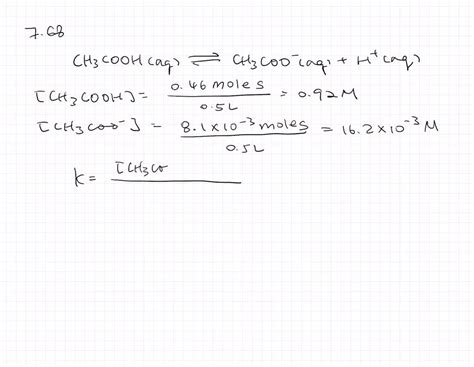 7.68
CH3COOH (aq) ⇌ CH3COO⁻(aq) + H⁺ (aq)
[CH3COOH] = 0.46 moles / 0.5L = 0.92 M
[CH3COO⁻] = 8.1×10⁻³ moles / 0.5L = 16.2×10⁻³ M
K = [CH3CO